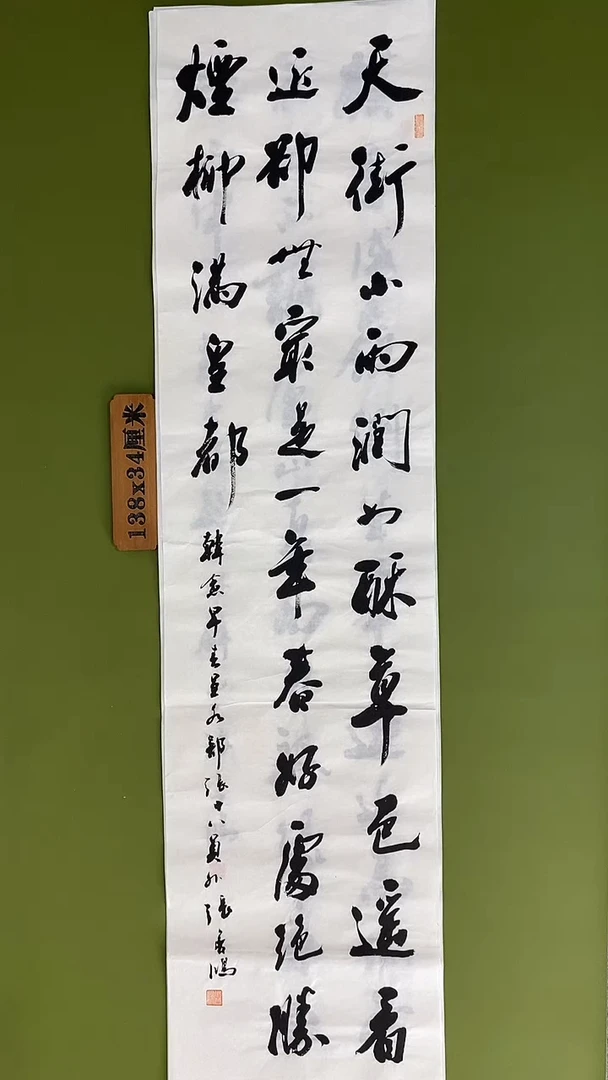 天街小雨潤如酥草色遥看
近卻無最是一年春好處絶勝
煙柳滿皇都
韓愈早春呈水部張十八員外 張
138x34厘米